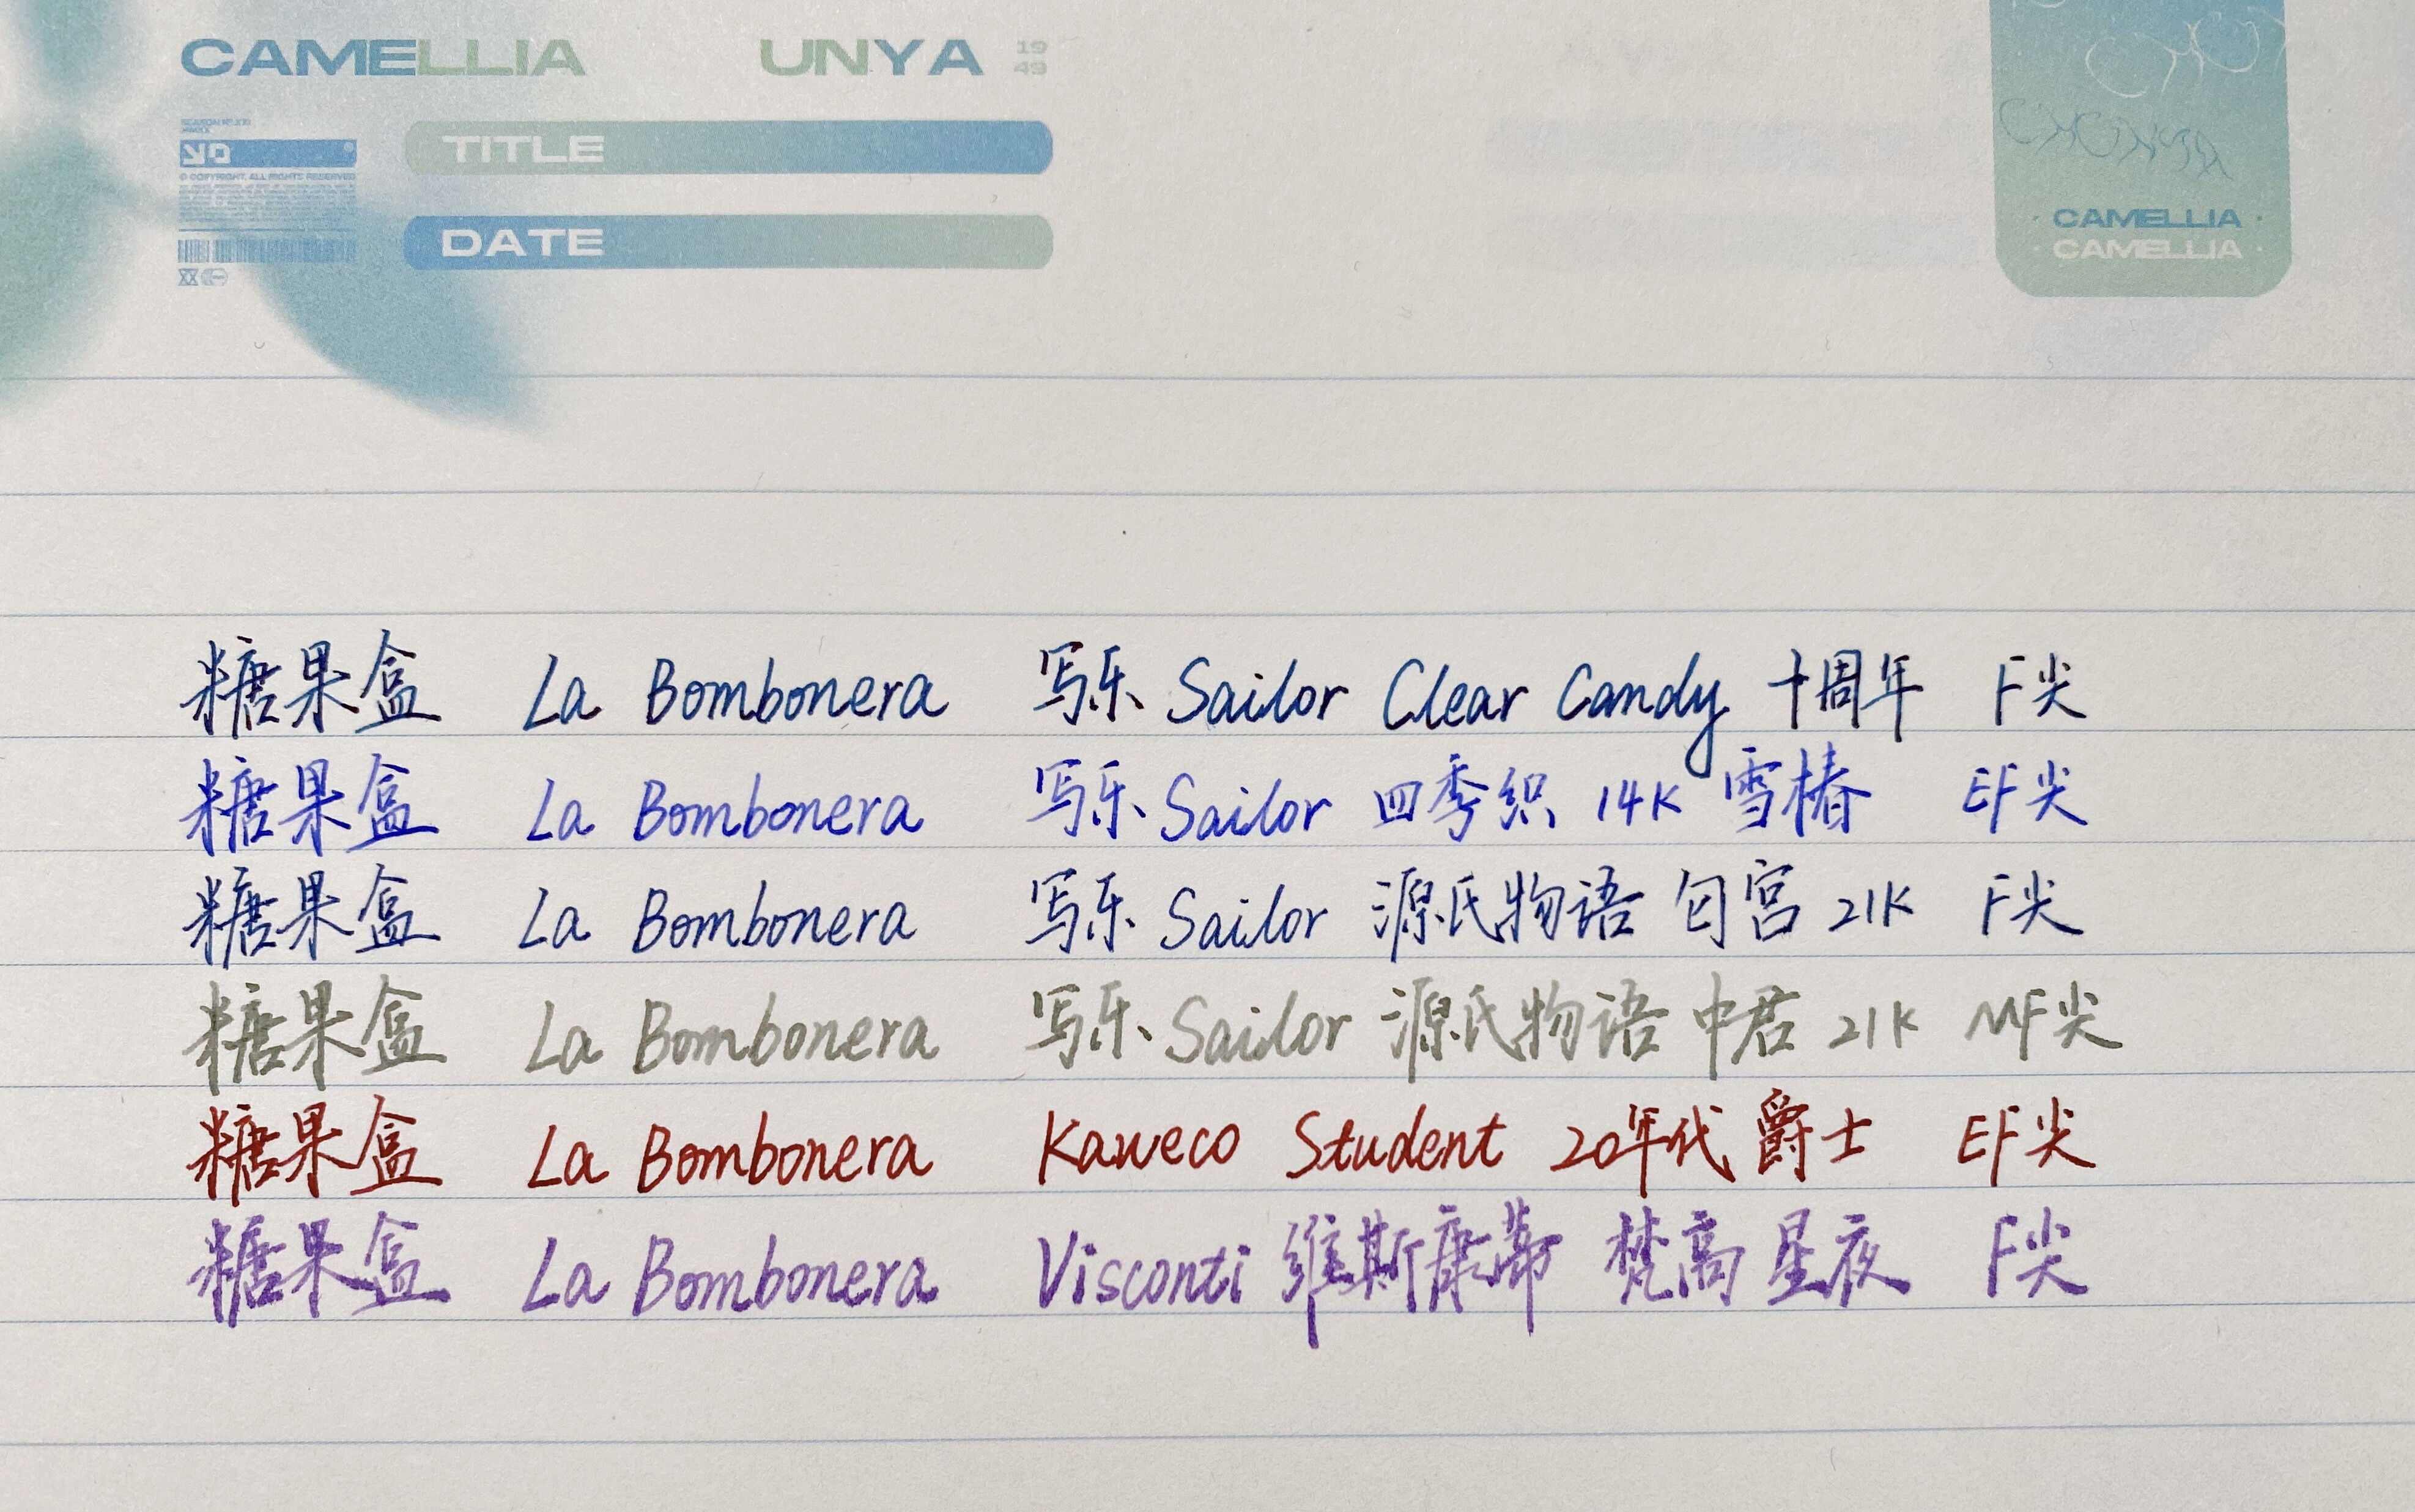 CAMELLIA UNYA 19 49
TITLE
© COPYRIGHT. ALL RIGHTS RESERVED
DATE
CAMELLIA
CAMELLIA
糖果盒 La Bombonera 写乐 Sailor Clear Candy 十周年 F尖
糖果盒 La Bombonera 写乐 Sailor 四季织 14K 雪椿 EF尖
糖果盒 La Bombonera 写乐 Sailor 源氏物语 匂宫 21K F尖
糖果盒 La Bombonera 写乐 Sailor 源氏物语 中君 21K MF尖
糖果盒 La Bombonera Kaweco Student 20年代 爵士 EF尖
糖果盒 La Bombonera Visconti 维斯康蒂 梵高 星夜 F尖